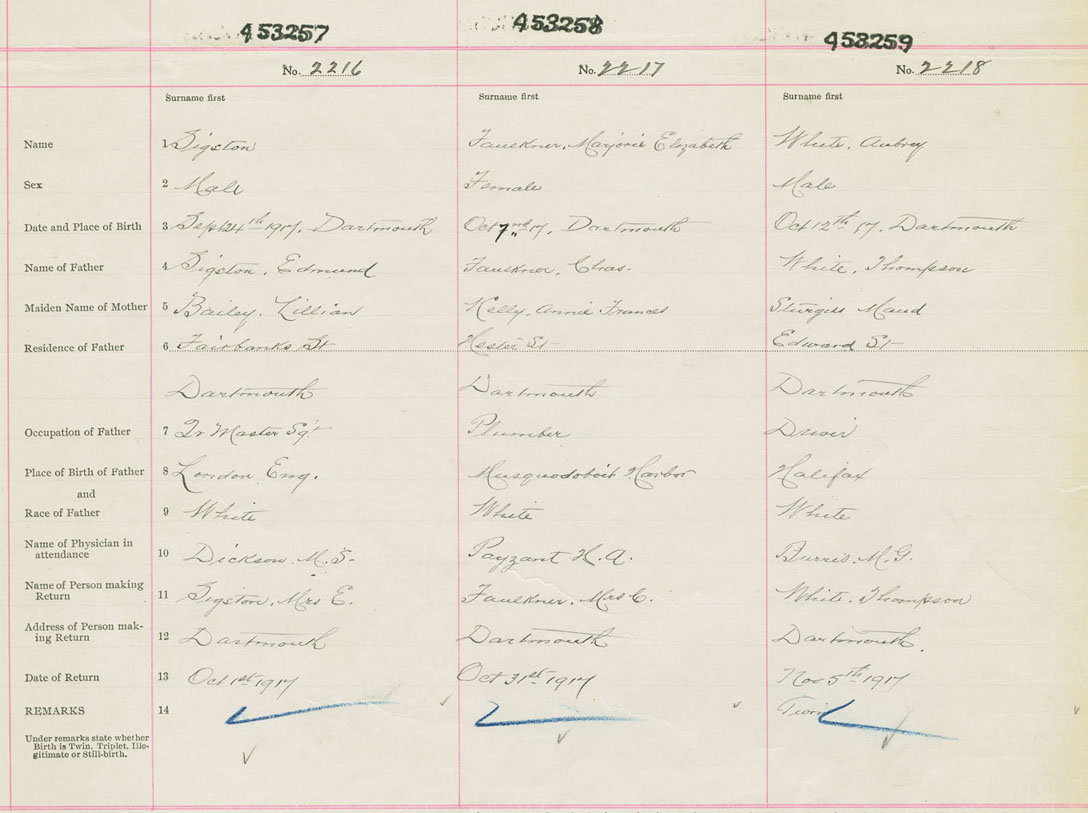 453257 453258 453259
No. 2216 No. 2217 No. 2218
Surname first Surname first Surname first
Name 1 Sigston Faulkner, Marjorie Elizabeth White, Aubrey
Sex 2 Male Female Male
Date and Place of Birth 3 Sept 24th 1917, Dartmouth Oct 17, Dartmouth Oct 12th 17, Dartmouth
Name of Father 4 Sigston, Edmund Faulkner, Chas. White, Thompson
Maiden Name of Mother 5 Bailey, Lillian Kelly, Annie Frances Sturgiss Maud
Residence of Father 6 Fairbanks St Hester St Edward St
Dartmouth Dartmouth Dartmouth
Occupation of Father 7 Qr Master Sgt Plumber Driver
Place of Birth of Father 8 London Eng. Musquodoboit Harbor Halifax
and
Race of Father 9 White White White
Name of Physician in
attendance 10 Dickson. M. S. Payzant H. A. Burris. M. G.
Name of Person making
Return 11 Sigston, Mrs E. Faulkner, Mrs C. White. Thompson
Address of Person mak-
ing Return 12 Dartmouth Dartmouth Dartmouth.
Date of Return 13 Oct 1st 1917 Oct 31st 1917 Nov 5th 1917
REMARKS 14 Twin
Under remarks state whether
Birth is Twin, Triplet, Ille-
gitimate or Still-birth.